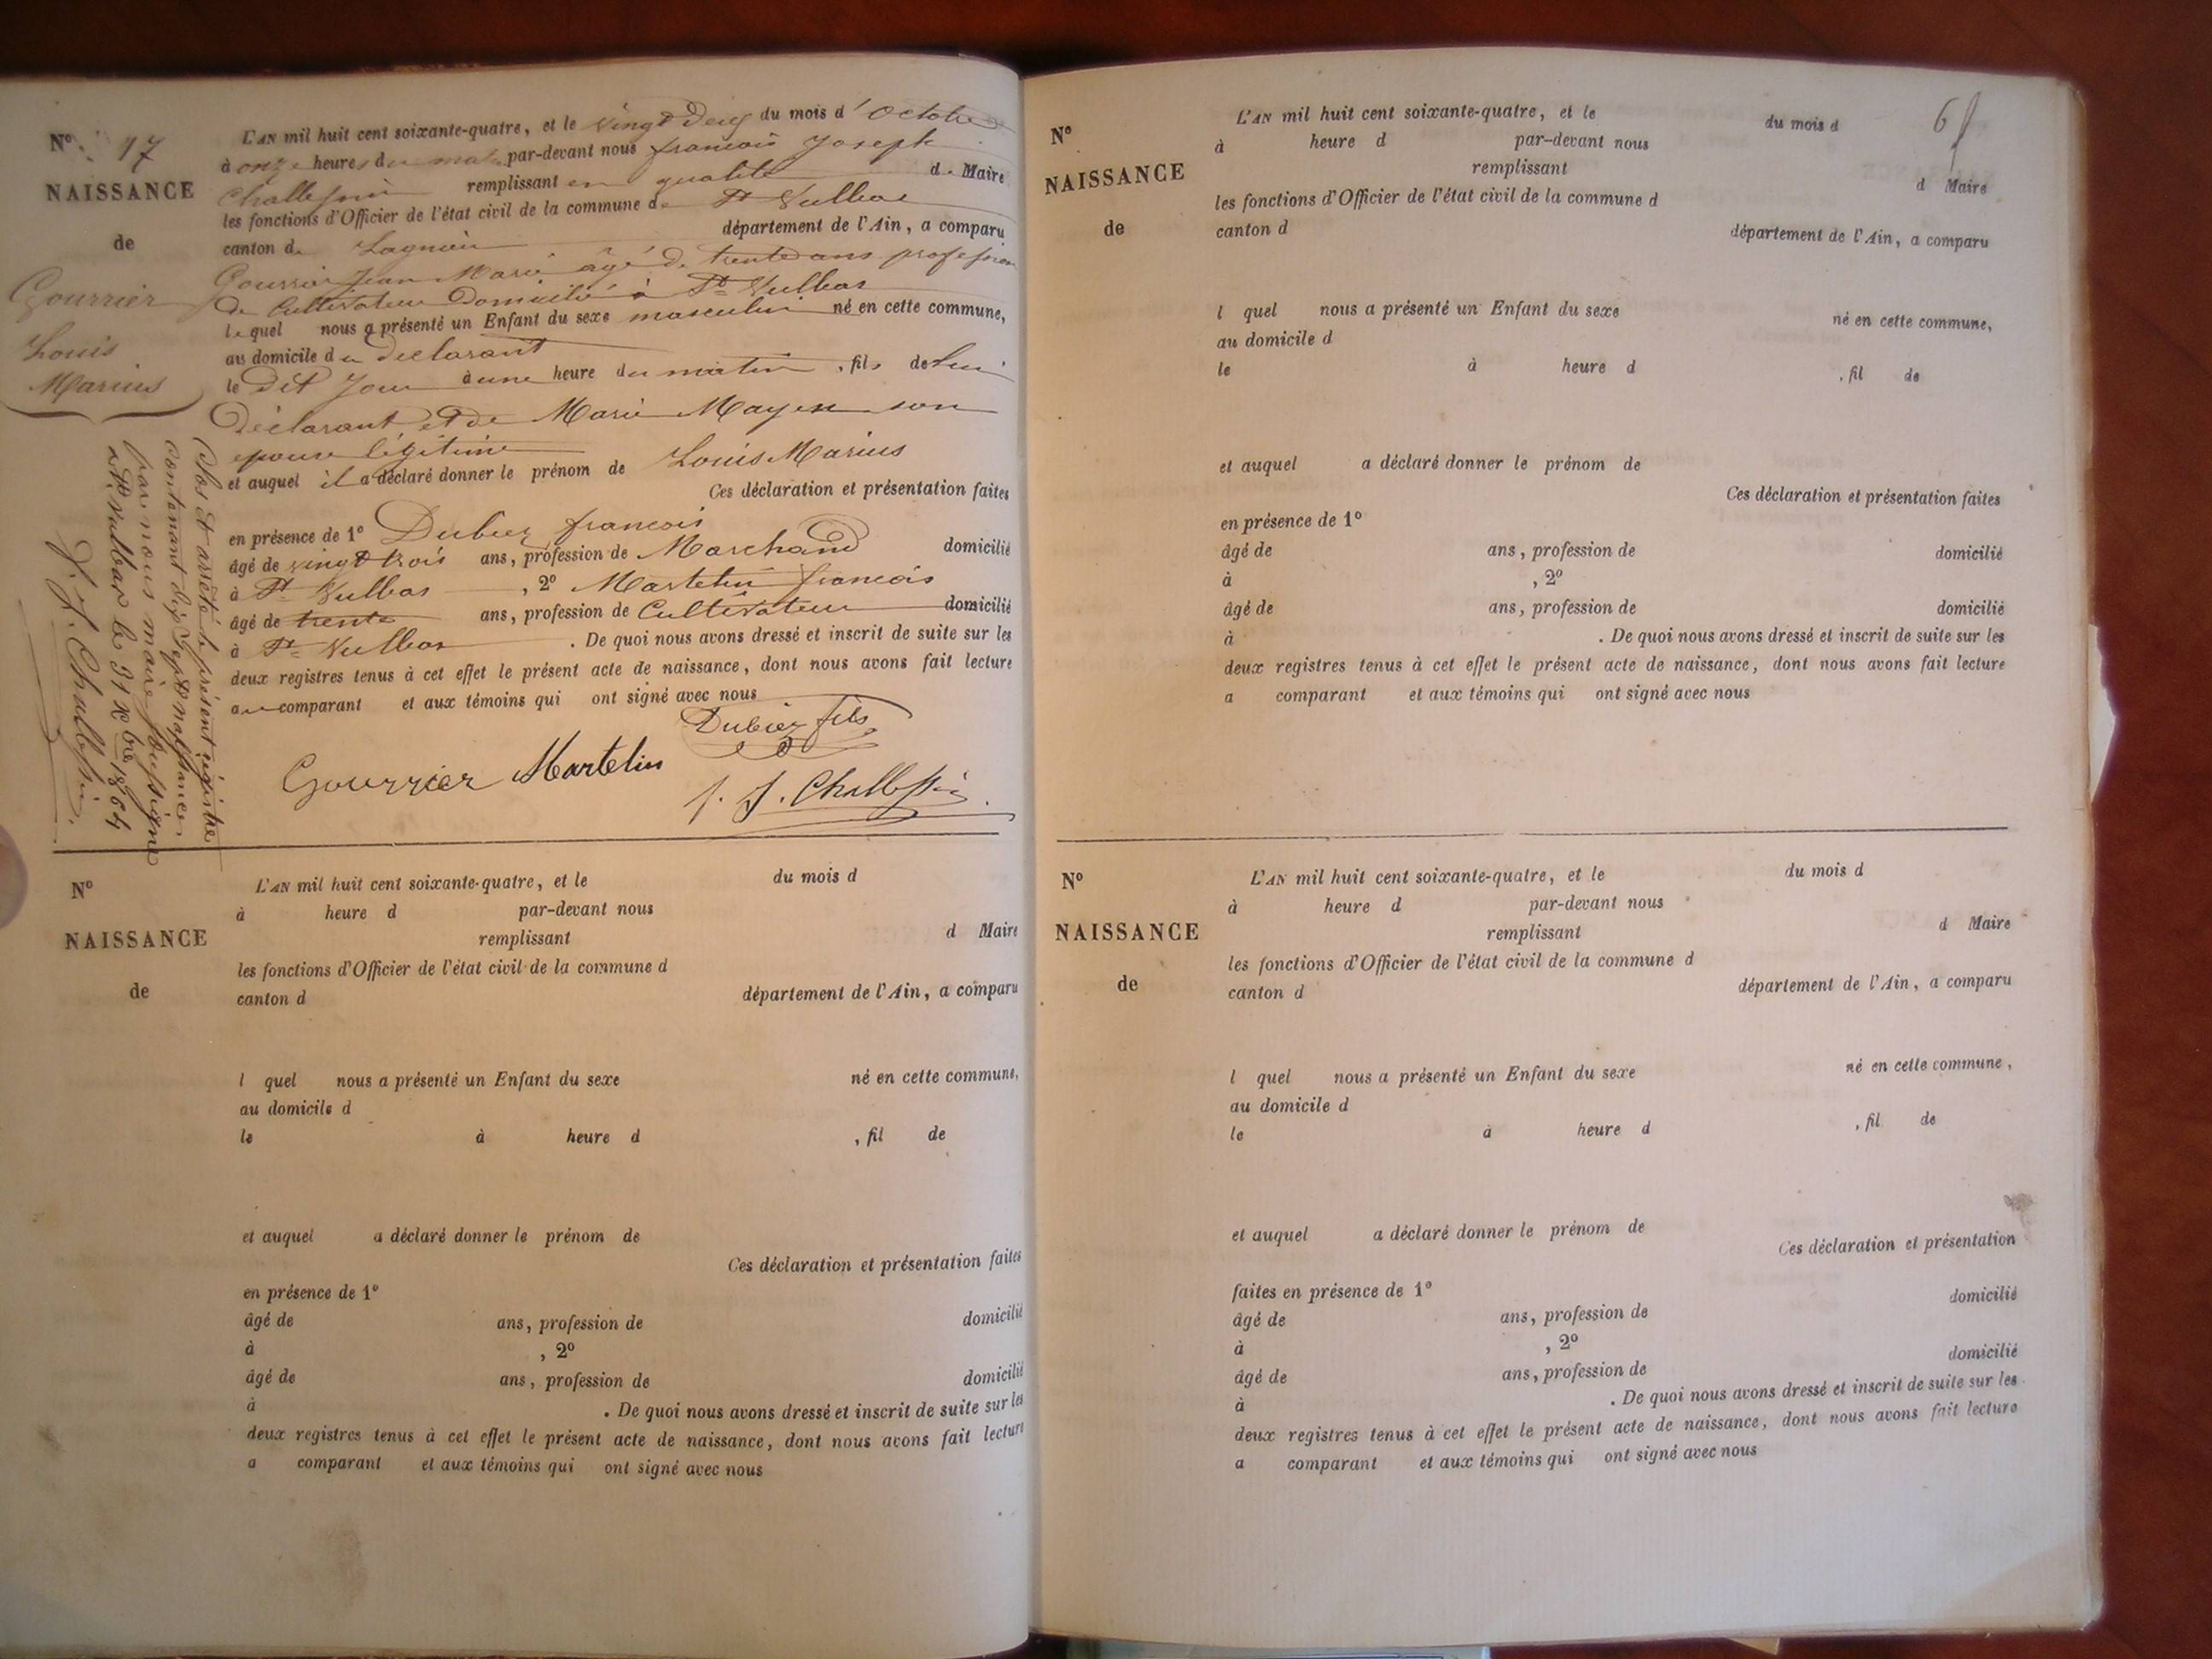 N° 17
NAISSANCE
de
Gourrier
Louis
Marius
L'AN mil huit cent soixante-quatre, et le vingt deux du mois d'Octobre
à onze heures du matin par-devant nous francois Joseph
remplissant en qualité de Maire
les fonctions d'Officier de l'état civil de la commune de St Vulbas
canton de Lagnieu département de l'Ain, a comparu
Gourrier Jean Marie âgé de trente ans profession
de Cultivateur Domicilié à St Vulbas
lequel nous a présenté un Enfant du sexe masculin né en cette commune,
au domicile du Déclarant
le Dit Jour à une heure du matin, fils de Lui
Déclarant et de Marie Mayen son
epouse légitime
et auquel il a déclaré donner le prénom de Louis Marius
Ces déclaration et présentation faites
en présence de 1° Dubiez francois
âgé de vingt trois ans, profession de Marchand domicilié
à St Vulbas, 2° Martelin francois
âgé de trente ans, profession de Cultivateur domicilié
à St Vulbas. De quoi nous avons dressé et inscrit de suite sur les
deux registres tenus à cet effet le présent acte de naissance, dont nous avons fait lecture
au comparant et aux témoins qui ont signé avec nous
Dubiez fils
Gourrier Martelin
f. J.
Clos et arrêté le présent régistre
contenant dix sept naissances
par nous maire soussigné
St Vulbas le 31 Xbre 1864
f. J.
N°
NAISSANCE
de
L'AN mil huit cent soixante-quatre, et le du mois d
à heure d par-devant nous
remplissant d Maire
les fonctions d'Officier de l'état civil de la commune d
canton d département de l'Ain, a comparu
l quel nous a présenté un Enfant du sexe né en cette commune,
au domicile d
le à heure d , fil de
et auquel a déclaré donner le prénom de
Ces déclaration et présentation faites
en présence de 1°
âgé de ans, profession de domicilié
à , 2°
âgé de ans, profession de domicilié
à . De quoi nous avons dressé et inscrit de suite sur les
deux registres tenus à cet effet le présent acte de naissance, dont nous avons fait lecture
a comparant et aux témoins qui ont signé avec nous
6
N°
NAISSANCE
de
L'AN mil huit cent soixante-quatre, et le du mois d
à heure d par-devant nous
remplissant d Maire
les fonctions d'Officier de l'état civil de la commune d
canton d département de l'Ain, a comparu
l quel nous a présenté un Enfant du sexe né en cette commune,
au domicile d
le à heure d , fil de
et auquel a déclaré donner le prénom de
Ces déclaration et présentation faites
en présence de 1°
âgé de ans, profession de domicilié
à , 2°
âgé de ans, profession de domicilié
à . De quoi nous avons dressé et inscrit de suite sur les
deux registres tenus à cet effet le présent acte de naissance, dont nous avons fait lecture
a comparant et aux témoins qui ont signé avec nous
N°
NAISSANCE
de
L'AN mil huit cent soixante-quatre, et le du mois d
à heure d par-devant nous
remplissant d Maire
les fonctions d'Officier de l'état civil de la commune d
canton d département de l'Ain, a comparu
l quel nous a présenté un Enfant du sexe né en cette commune,
au domicile d
le à heure d , fil de
et auquel a déclaré donner le prénom de
Ces déclaration et présentation
faites en présence de 1°
âgé de ans, profession de domicilié
à , 2°
âgé de ans, profession de domicilié
à . De quoi nous avons dressé et inscrit de suite sur les
deux registres tenus à cet effet le présent acte de naissance, dont nous avons fait lecture
a comparant et aux témoins qui ont signé avec nous